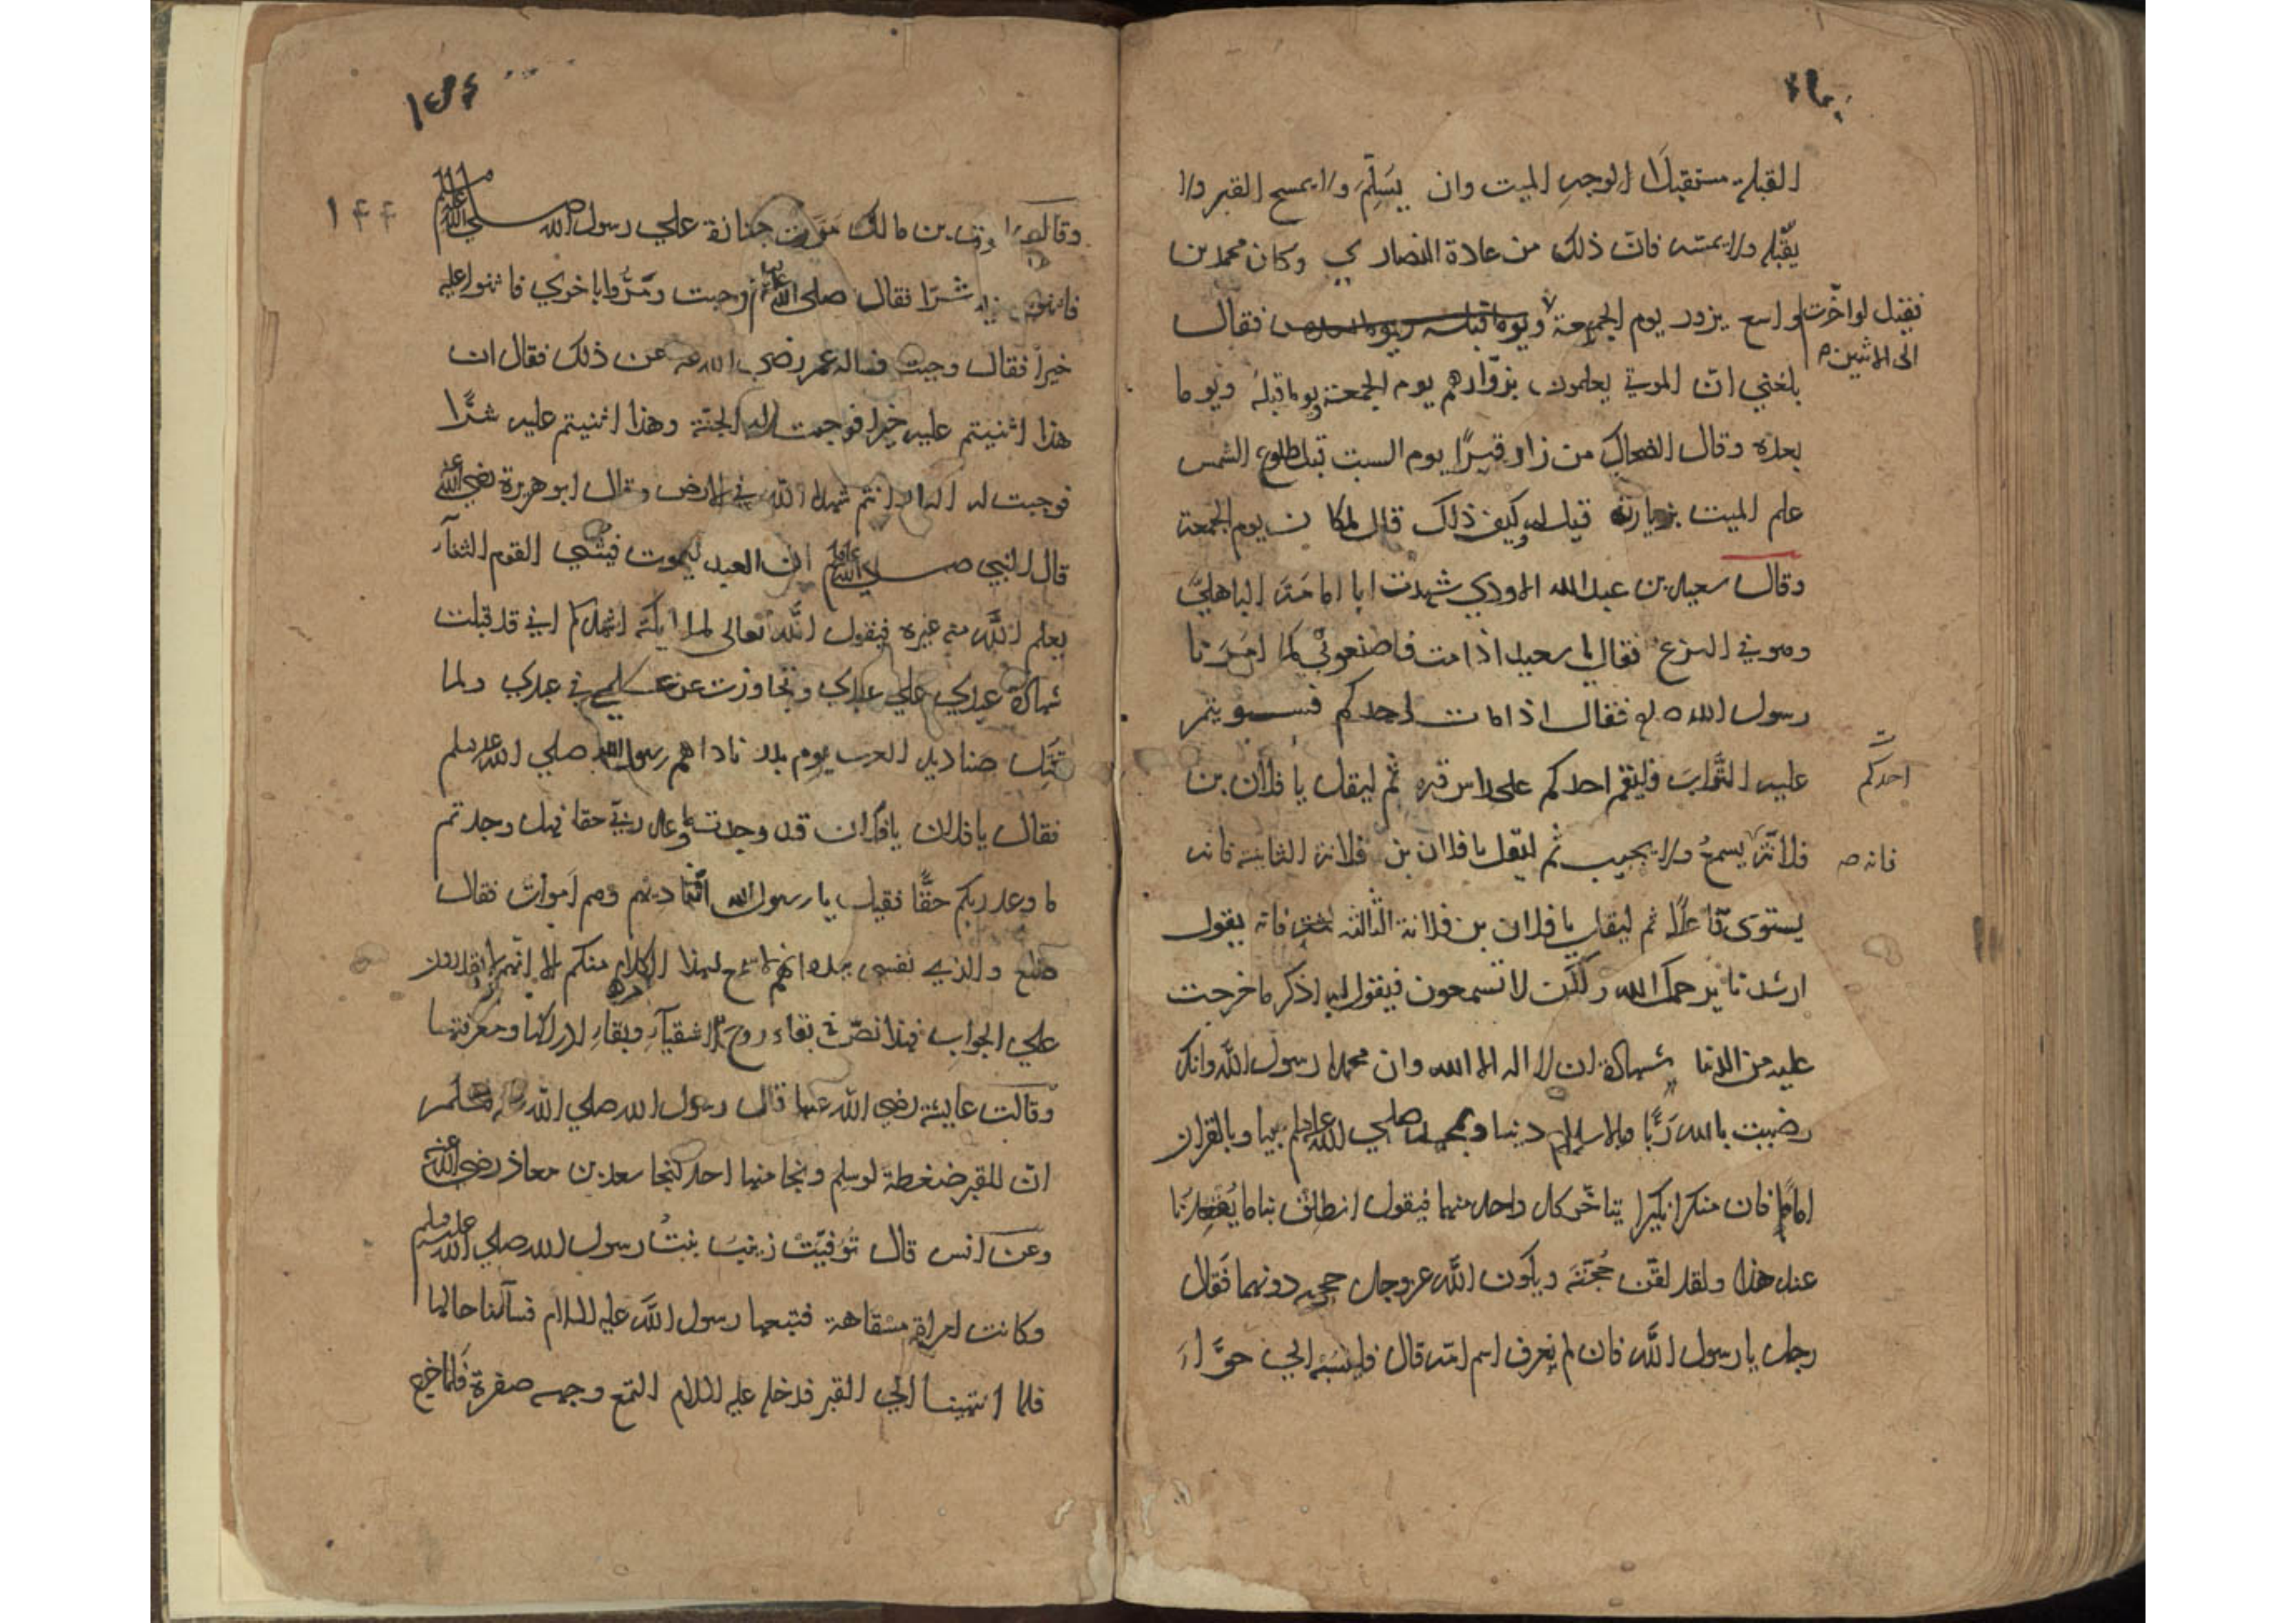 القبلة مستقبلا لوجه الميت وان يسلم ولا يمسح القبر ولا
يقبله ولا يمسه فان ذلك من عادة النصاري وكان محمد بن
واسع يزور يوم الجمعة فقال
فقيل لو اخرت
الى الاثنين
بلغني ان الموتي يعلمون بزوارهم يوم الجمعة ويوما قبله ويوما
بعده وقال الضحاك من زار قبرًا يوم السبت قبل طلوع الشمس
علم الميت بزيارته قيل له وكيف ذلك قال لمكان يوم الجمعة
وقال سعيد بن عبد الله الاودي شهدت ابا امامة الباهلي
وهو في النزع فقال يا سعيد اذا مت فاصنعوا بي كما امرنا
رسول الله فقال اذا مات احدكم فسويتم
عليه التراب فليقم احدكم على راس قبره ثم ليقل يا فلان بن
احدكم
فلانة يسمع ولا يجيب ثم ليقل يا فلان بن فلانة الثانية فانه
فانه
يستوى قاعدًا ثم ليقل يا فلان بن فلانة الثالثة فانه يقول
ارشدنا يرحمك الله ولكن لا تسمعون فيقول له اذكر ما خرجت
عليه من الدنيا شهادة ان لا اله الا الله وان محمدا رسول الله وانك
رضيت بالله ربًّا وبالاسلام دينا وبمحمد صلي الله عليه وسلم نبيا وبالقران
امامًا فان منكرا نكيرا يتاخر كل واحد منهما فيقول انطلق بنا ما يقعدنا
عند هذا ولقد لقن حجته ويكون الله عز وجل حجيجه دونهما فقال
رجل يا رسول الله فان لم يعرف اسم امه قال فلينسبه الي حوّاء
١٤٤
وقال بن مالك مرت جنازة علي رسول الله صلي الله عليه وسلم
فاثنوا شرّا فقال صلى الله عليه وجبت ومرّوا باخري فاثنوا عليه
خيرا فقال وجبت فساله عمر رضي الله عنه عن ذلك فقال ان
هذا اثنيتم عليه خيرا فوجبت له الجنة وهذا اثنيتم عليه شرًّا
فوجبت له النار انتم شهداء الله في الارض وقال ابو هريرة رضي الله عنه
قال النبي صلي الله عليه وسلم ان العبد ليموت فيثني القوم الثنآء
يعلم الله منه غيره فيقول الله تعالى لملائكته اشهدكم اني قد قبلت
شهادة عبدي علي عبدي وتجاوزت عن علمي في عبدي ولما
قتل صناديد العرب يوم بدر ناداهم رسول الله صلي الله عليه وسلم
فقال يا فلان يا فلان قد وجدت ما وعدني ربي حقا فهل وجدتم
ما وعد ربكم حقًّا فقيل يا رسول الله اتناديهم وهم اموات فقال
صلع والذي نفسي بيده انهم لاسمع لهذا الكلام منكم الا انهم لا يقدرون
علي الجواب فهذا نصّ في بقاء روح الاشقيآء وبقاء ادراكها ومعرفتها
وقالت عايشة رضي الله عنها قال رسول الله صلي الله عليه وسلم
انّ للقبر ضغطة لو سلم ونجا منها احد لنجا سعد بن معاذ رضي الله عنه
وعن انس قال توفيت زينب بنت رسول الله صلي الله عليه وسلم
وكانت امراة مسقاهة فتبعها رسول الله عليه السلام فسآءلنا حالها
فلما انتهينا الي القبر فدخله عليه السلام التمع وجهه صفرة فلما خرج